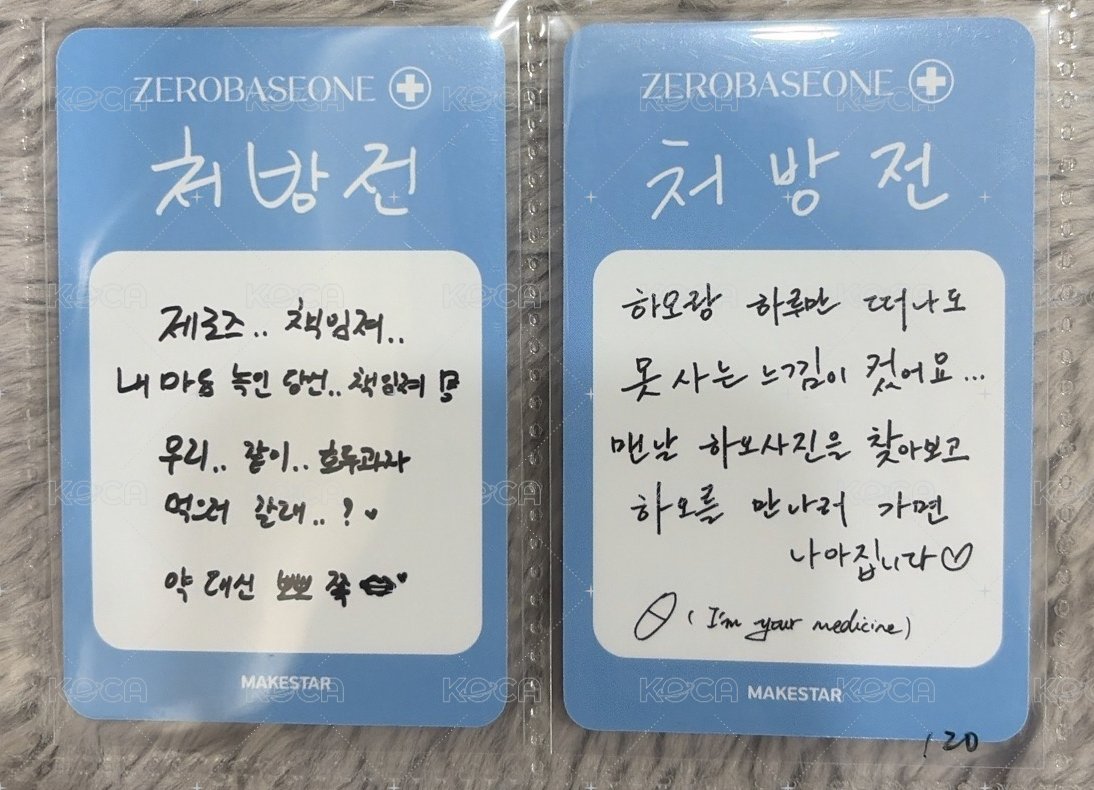 ZEROBASEONE
처방전
제로즈.. 책임져..
내 마음 녹인 당신.. 책임져
우리.. 같이.. 호두과자
먹으러 갈래..? ♥
약 대신 뽀뽀 쪽
MAKESTAR
ZEROBASEONE
처방전
하오랑 하루만 떠나도
못 사는 느낌이 컸어요...
맨날 하오사진을 찾아보고
하오를 만나러 가면
나아집니다♡
(I'm your medicine)
MAKESTAR
120
KOCA